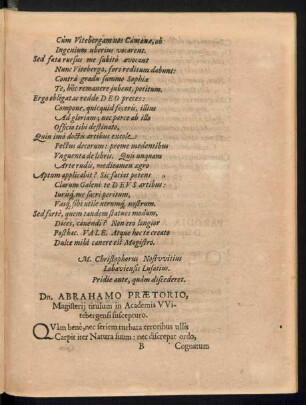 Cùm Vitebergam nos Camœnæ, ob
Ingenium uberius vocarent.
Sed fata rursus me subitò avocant
Nunc Vitebergâ, ferò reditum dabunt:
Contrà gradu summo Sophiæ
Te, hîc remanere jubent, potitum.
Ergo obligatas redde DEO preces:
Compone, quicquid feceris, illius
Ad gloriam; nec parce ab illo
Officiis tibi destinato,
Quin imò doctis artibus excole
Pectus decorum: prome medentibus
Unguenta de libris. Quis unquam
Arte rudis, medicamen ægro
Aptum applicabit? Sic facies potens
Clarum Galeni te DEUS artibus:
Iurisq́, me sacri peritum,
Vasq́, sibi utile utrumq́, nostrum.
Sed fortè, quem tandem statues modum,
Dices, canendi? Non ero longior
Posthac. VALE. Atque hoc te creato
Dulce mihi canere est Magistro.
M. Christophorus Nostvvitius
Lobaviensis Lusatius.
Pridie ante, quàm discederet.
Dn. ABRAHAMO PRÆTORIO,
Magisterij titulum in Academia VVi-
tebergensi suscepturo.
QUàm benè, nec seriem turbata erroribus ullis
Carpit iter Natura suum: nec discrepat ordo,
B Cognatum